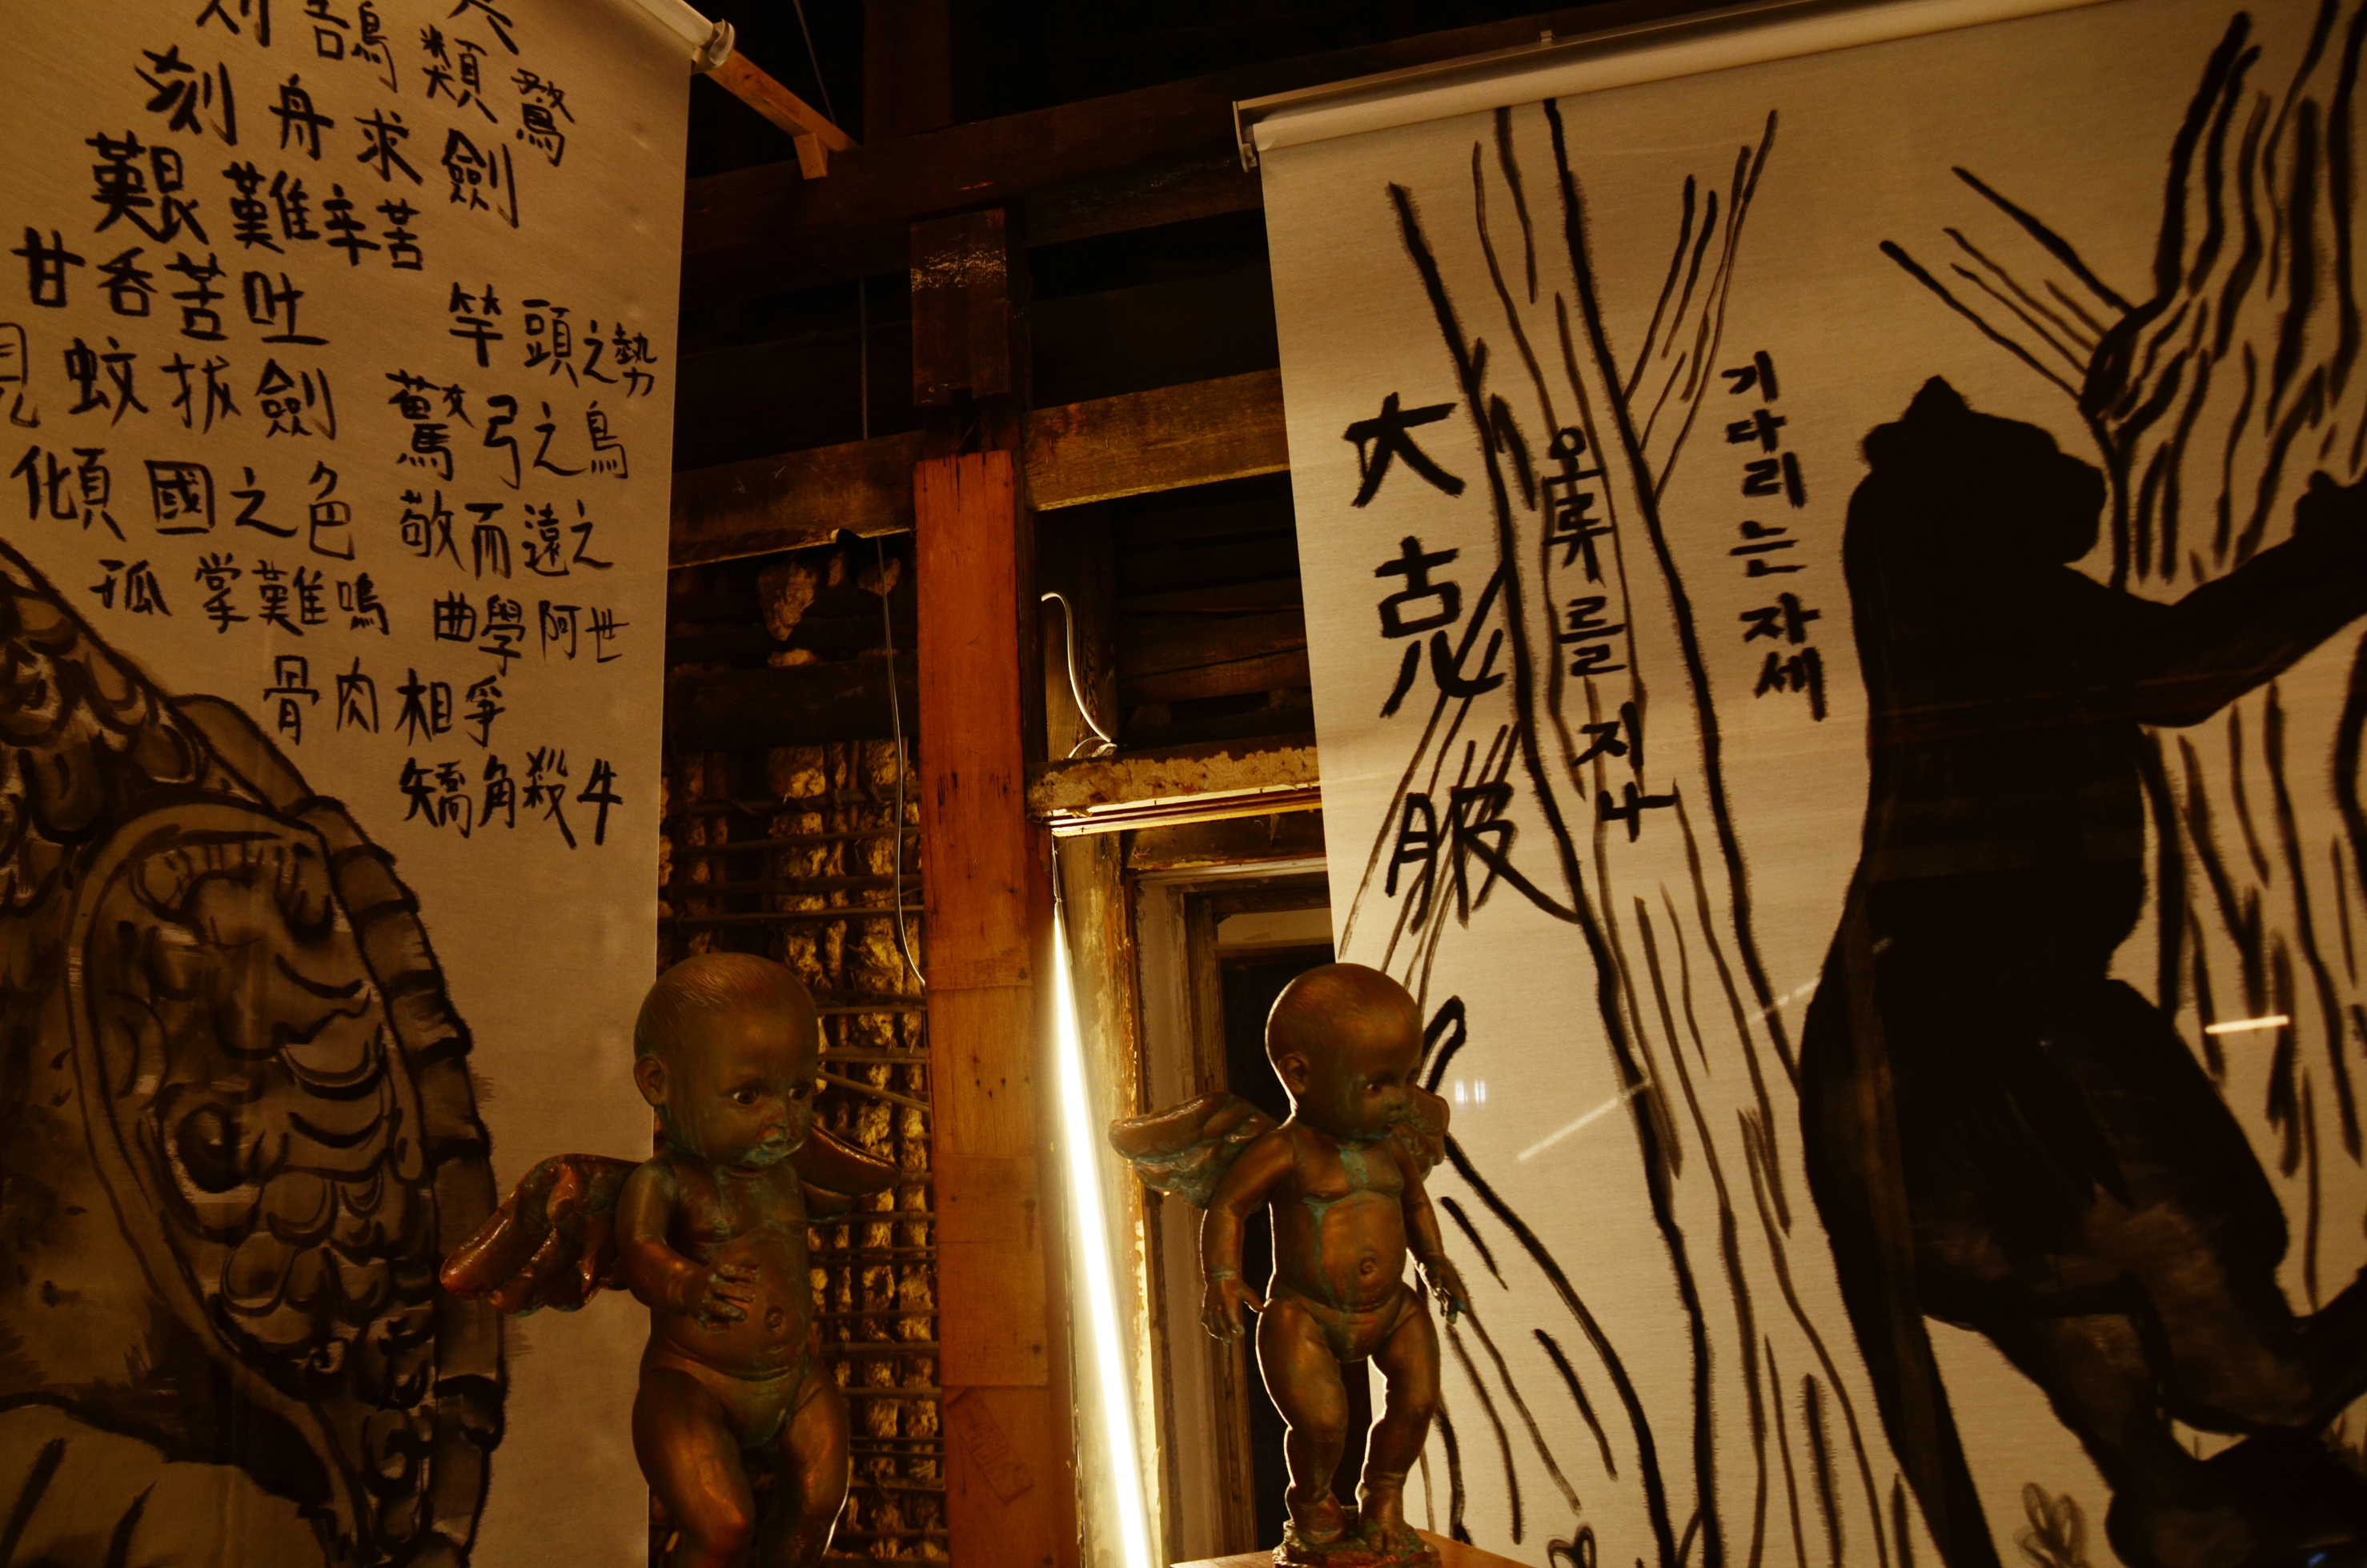 刻鵠類鶩
刻舟求劍
艱難辛苦
甘呑苦吐
見蚊拔劍
傾國之色
孤掌難鳴
骨肉相爭
竿頭之勢
驚弓之鳥
敬而遠之
曲學阿世
矯角殺牛
大克服
를 지나
기다리는 자세